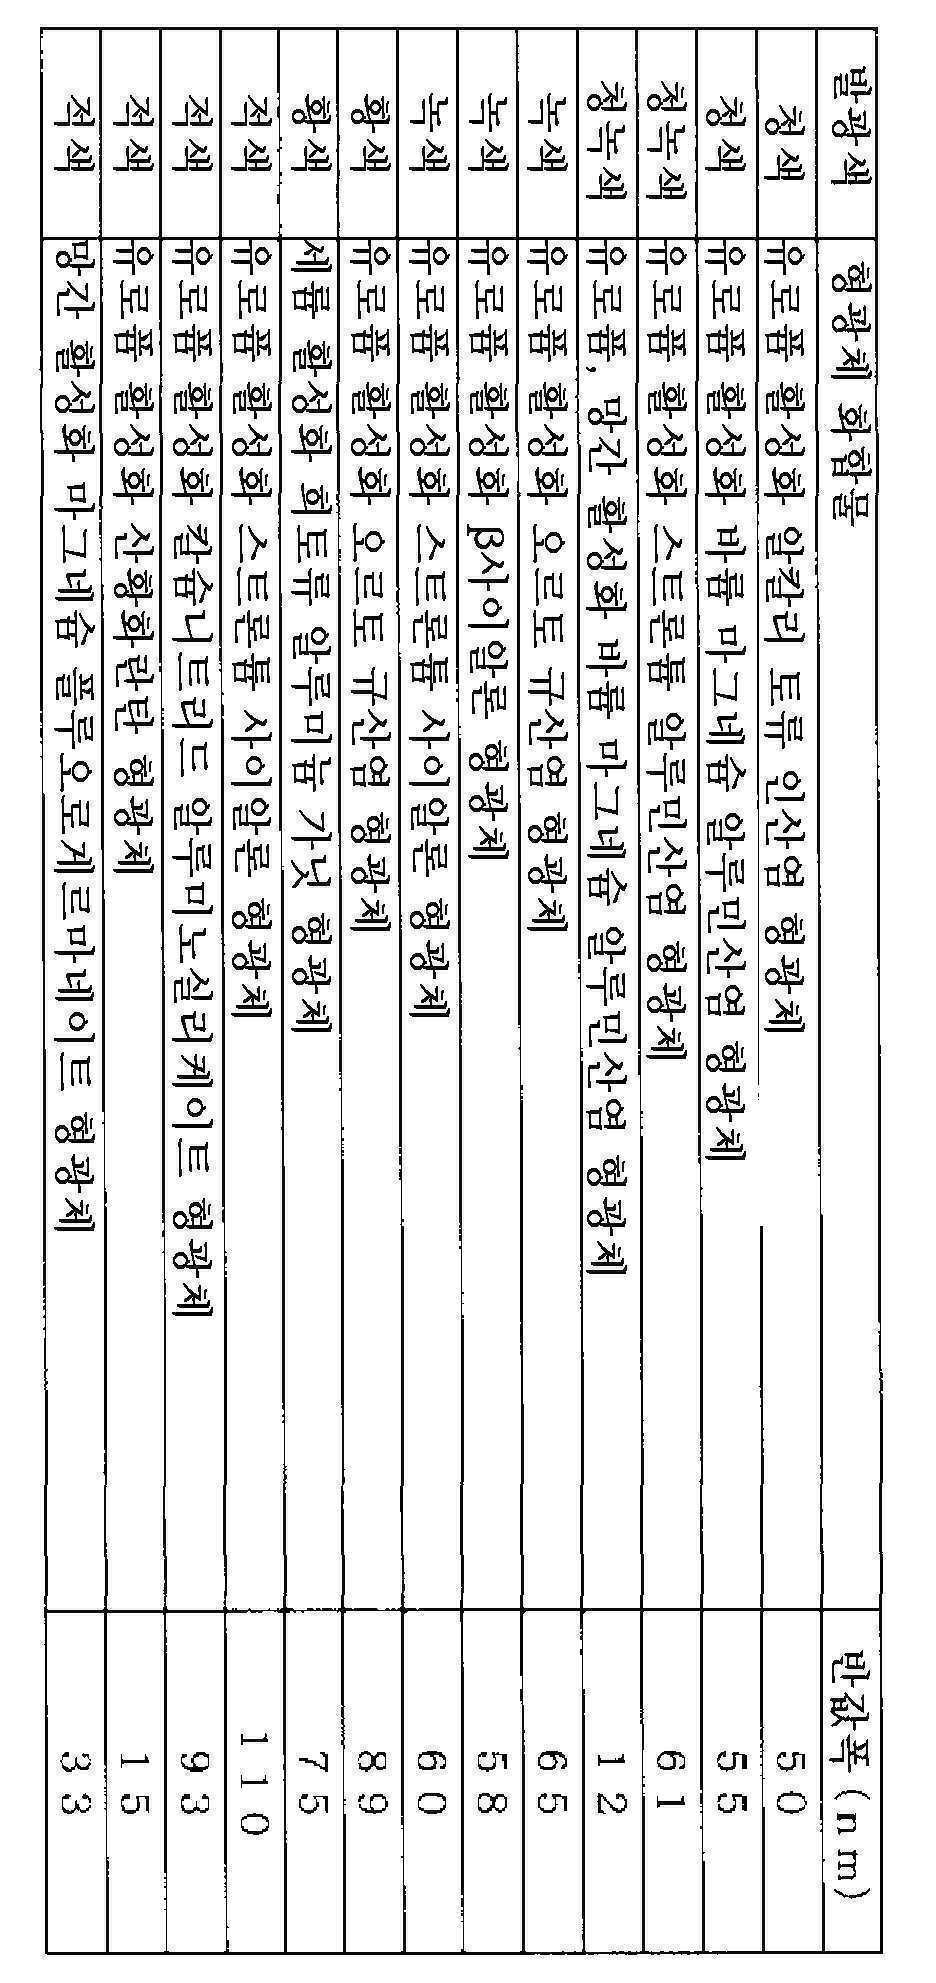 발광색 형광체 화합물 반값폭(nm)
청색 유로퓸 활성화 알칼리 토류 인산염 형광체 50
청색 유로퓸 활성화 바륨 마그네슘 알루민산염 형광체 55
청녹색 유로퓸 활성화 스트론튬 알루민산염 형광체 61
청녹색 유로퓸, 망간 활성화 바륨 마그네슘 알루민산염 형광체 12
녹색 유로퓸 활성화 오르토 규산염 형광체 65
녹색 유로퓸 활성화 β사이알론 형광체 58
녹색 유로퓸 활성화 스트론튬 사이알론 형광체 60
황색 유로퓸 활성화 오르토 규산염 형광체 89
황색 세륨 활성화 희토류 알루미늄 가닛 형광체 75
적색 유로퓸 활성화 스트론튬 사이알론 형광체 110
적색 유로퓸 활성화 칼슘니트리드 알루미노실리케이트 형광체 93
적색 유로퓸 활성화 산황화란탄 형광체 15
적색 망간 활성화 마그네슘 플루오로게르마네이트 형광체 33